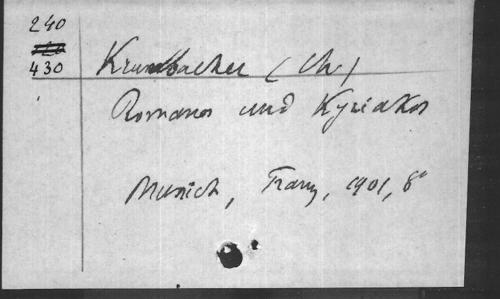 240
430
Krumbacher (Ch)
Romanos und Kyriakos
Munich, Franz, 1901, 8°